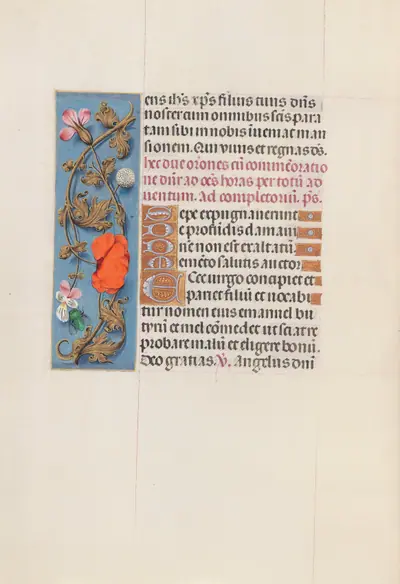 ens ih̄s xp̄s filius tuus dn̄s
noster cum omnibus scīs para
tam sibi in nobis inueniat man
sionem. Qui uiuis et regnas ds̄.
hec due or̄ones cū cōmēmoratio
ne dn̄r ad oēs horas per totū ad
uentum. ad completoriū. ps̄.
Sepe expugnauerunt
De profundis clamaui
Dn̄e non est exaltatū.
Memēto salutis auctor
Ecce uirgo concipiet et
pariet filiū et uocabi
tur nomen eius emanuel bu
tyrū et mel cōmedet ut sciat re
probare malū et eligere bonū.
Deo gratias. V. Angelus dn̄i